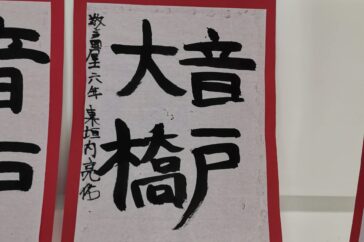 音戸
大橋
六年 東垣内亮佑
音戸